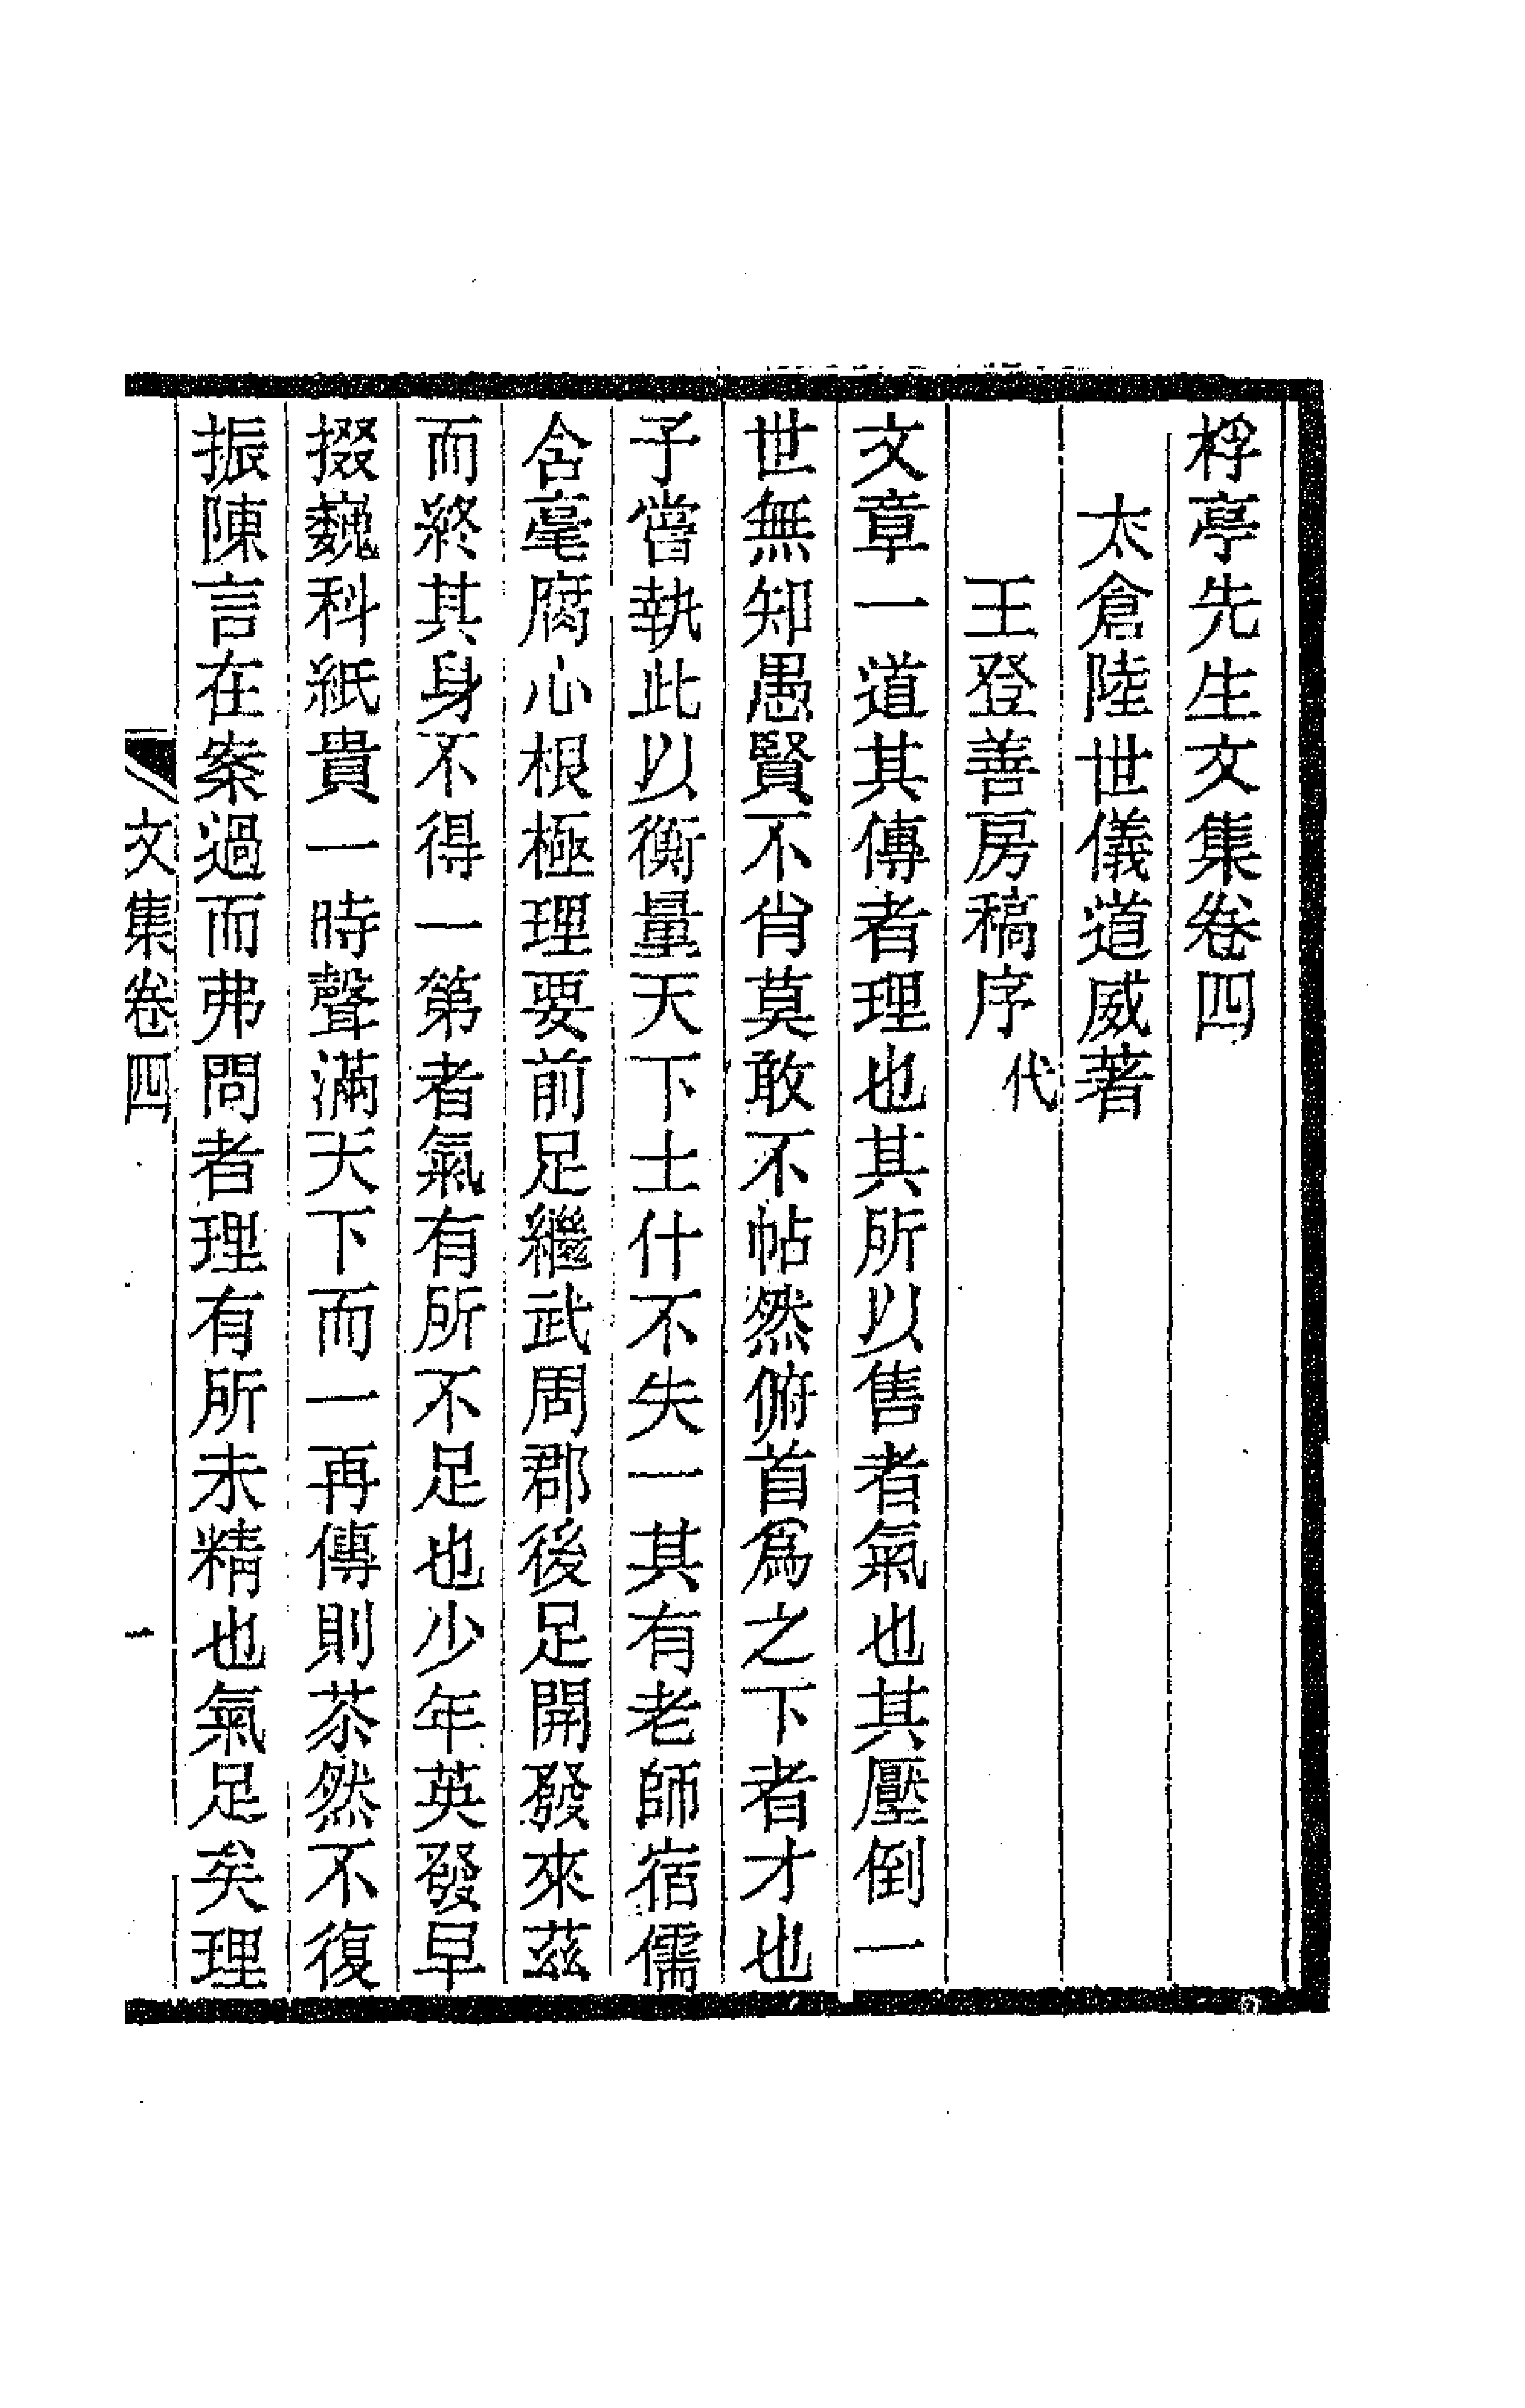 桴亭先生文集卷四
太倉陸世儀道威著
王登善房稿序代
文章一道其傳者理也其所以售者氣也其壓倒一
世無知愚賢不肖莫敢不帖然俯首爲之下者才也
予嘗執此以衡量天下士什不失一其有老師宿儒
含毫腐心根極理要前足繼武周郡後足開發來茲
而終其身不得一第者氣有所不足也少年英發早
掇巍科紙貴一時聲滿天下而一再傳則苶然不復
振陳言在案過而弗問者理有所未精也氣足矣理
文集卷四
一